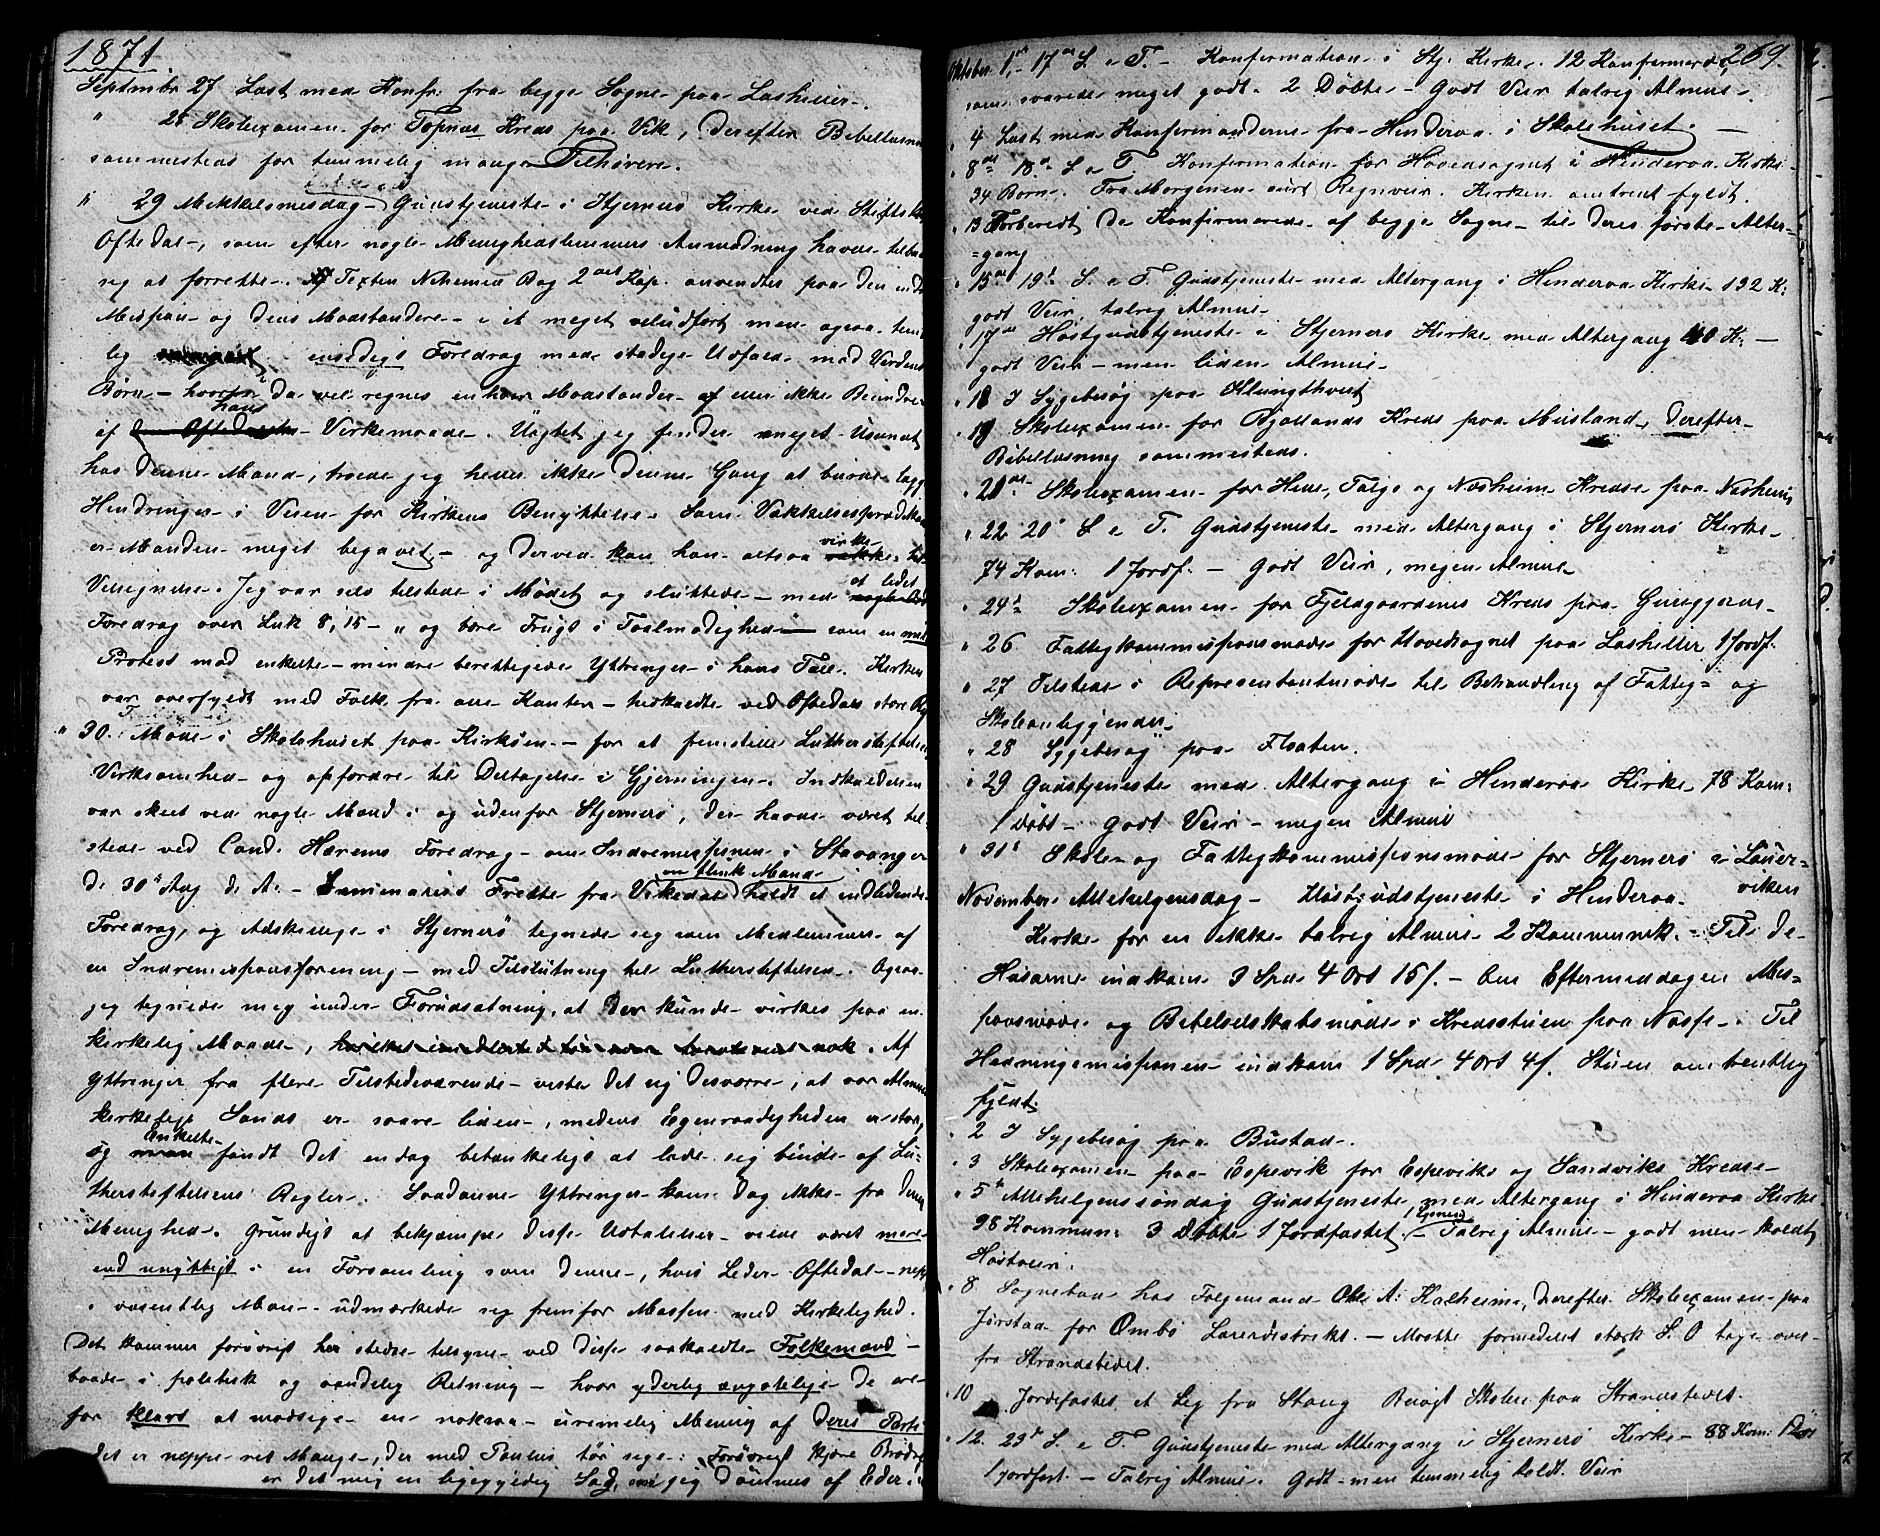 1871.
Septmbr 27 Læst med Konf: fra begge Sogne paa Løsheller.
" 28 Skoleexamen for Topnæs Kreds paa Vik, derefter Bibellæsning
sammesteds for temmelig mange Tilhørere.
" 29 Mikkelsmesdag Gudstjeneste i Stjernerø Kirke ved Stifts
Oftedal, som efter nogle Menighedslemmers Anmodning havde tilbu
sig at forrette. Texten Nehemiæ Bog 2det Kap. anvendtes paa den ind
Mission og dens Modstandere i et meget veludført men ogsaa tem
lig ensidigt Foredrag med stadige Udfald mod Verdens
Børn da vel regnes enhver Modstander af eller ikke Beundrer
af hans Virkemaade. Uagtet jeg finder meget Usundt
hos denne Mand, troede jeg heller ikke denne Gang at burde lægge
Hindringer i Veien for Kirkens Benyttelse. Som Vækkelsesprædikant
er Manden meget begavet og derved kan han altsaa virke til
Velsignelse. Jeg var selv tilstede i Mødet og sluttede med et lidet
Foredrag over Luk 8,15 "og bære Frugt i Taalmodighed" som en mild
Protest mod enkelte mindre berettigede Yttringer i hans Tale. Kirken
var overfyldt med Folk fra alle Kanter hidkaldte ved Oftedals store Ry
" 30. Møde i Skolehuset paa Kirkøen for at fremstille Lutherstiftelsens
Virksomhed og opfordre til Deltagelse i Gjerningen. Indkaldelsen
var skeet ved nogle Mænd i og udenfor Stjernerø, der havde været til-
stede ved Cand. Hærems Foredrag om Indremissionen i Stavanger
d. 30te Aug d. A. Seminarist Frette fra Vikedal en flink Mand holdt et indledende
Foredrag, og Adskillige i Stjernerø tegnede sig som Medlemmer af
en Indremissionsforening med Tilslutning til Lutherstiftelsen. Ogsaa
jeg tegnede mig under Forudsætning, at der kunde virkes paa en
kirkelig Maade, . Af
Yttringer fra flere Tilstedeværende viste det sig desværre, at vor Almues
kirkelige Sands er saare liden, medens Egenraadigheden er stor,
og Enkelte fandt det endog betænkeligt at lade sig binde af Lu-
therstiftelsens Regler. Saadanne Yttringer kom dog ikke fra denne
Menighed. Grundigt at bekjæmpe disse Udtalelser vilde været mere
end unyttigt i en Forsamling som denne, hvis Leder Oftedal nepp
i væsentlig Mon udmærkede sig fremfor Massen med Kirkelighed.
Det kommer forøvrigt her stedse tilsyne ved disse saakaldte Folkemænd
baade i politisk og aandelig Retning hvor yderlig ængstelige de ere
for klart at modsige en noksaa urimelig Mening af deres Parti
det er neppe ret Mange, der med Paulus tør sige: Forøvrigt kjære Brødre
er det mig en ligegyldig Sag, om jeg dømmes af Eder.
Oktober 1, 17de S. e. T. Konfirmation i Stj. Kirke. 12 Konfirmerede, 269.
som svarede meget godt. 2 Døbte Godt Veir talrig Almue.
" 4 Læst med Konfirmanderne fra Hinderaa i Skolehuset.
" 8de 18de S. e. T. Konfirmation for Hovedsognet i Hinderaa Kirke
34 Børn. Fra Morgenen surt Regnveir. Kirken omtrent fyldt.
" 13 Forberedt de Konfirmerede af begge Sogne til deres første Alter-
=gang
" 15de 19de S. e. T. Gudstjeneste med Altergang i Hinderaa Kirke 132 K:
godt Veir, talrig Almue.
" 17de Høstgudstjeneste i Stjernerø Kirke med Altergang 40 K:
godt Veir men liden Almue.
" 18 I Sygebesøg paa Klungtveit
" 19 Skoleexamen for Fjøllands Kreds paa Meusland, derefter
Bibellæsning sammesteds.
" 20de Skoleexamen for Hebe, Talge og Næsheim Kredse paa Næsheim
" 22 20de S. e. T. Gudstjeneste med Altergang i Stjernerø Kirke
74 Kom: 1 Jordf. Godt Veir, megen Almue.
" 24de Skoleexamen for Fjeldgaardenes Kreds paa
" 26 Fattigkommissionsmøde for Hovedsognet paa Løsheller 1 Jordf.
" 27 Tilstede i Representantmøde til Behandling af Fattig= og
Skoleanliggender.
" 28 Sygebesøg paa Floaten.
" 29 Gudstjeneste med Altergang i Hinderaa Kirke 78 Kom:
1 døbt godt Veir megen Almue
" 31te Skole og Fattigkommissionsmøde for Stjernerø i Løver-
viken
November. Allehelgensdag Høstgudstjeneste i Hinderaa
1 Kirke for en ikke talrig Almue 2 Kommunik. Til de
Husarme indkom 3 Spd 4 Ort 15 ſ. Om Eftermiddagen Mis-
sionsmøde og Bibelselskabsmøde i Kredsstuen paa Næsse. Til
Hedningemissionen indkom 1 Spd 4 Ort 4 ſ. Stuen omtrentlig
fyldt.
" 2 I Sygebesøg paa Bustad.
" 3 Skoleexamen paa Espevik for Espeviks og Sandviks Kredse
" 5te Allehelgenssøndag Gudstjeneste med Altergang i Hinderaa Kirke
98 Kommun: 3 Døbte 1 Jordfæstet Talrig Almue godt men koldt
Høstveir.
" 8 Sognebud hos Følgemand Ole A. Halheim, derefter Skoleexamen paa
Jørstad for Ombo Læredistrikt. Maatte formedelst stærk S. O tage over
fra Strandstedet.
" 10 Jordfæstet et Lig fra Stang Besøgt Skolen paa Strandstedet.
" 12. 23de S. e. T. Gudstjeneste med Altergang i Stjernerø Kirke 88 Kom: 1 Døbt
1 jordfæst. Talrig Almue. Godt men temmelig koldt Veir